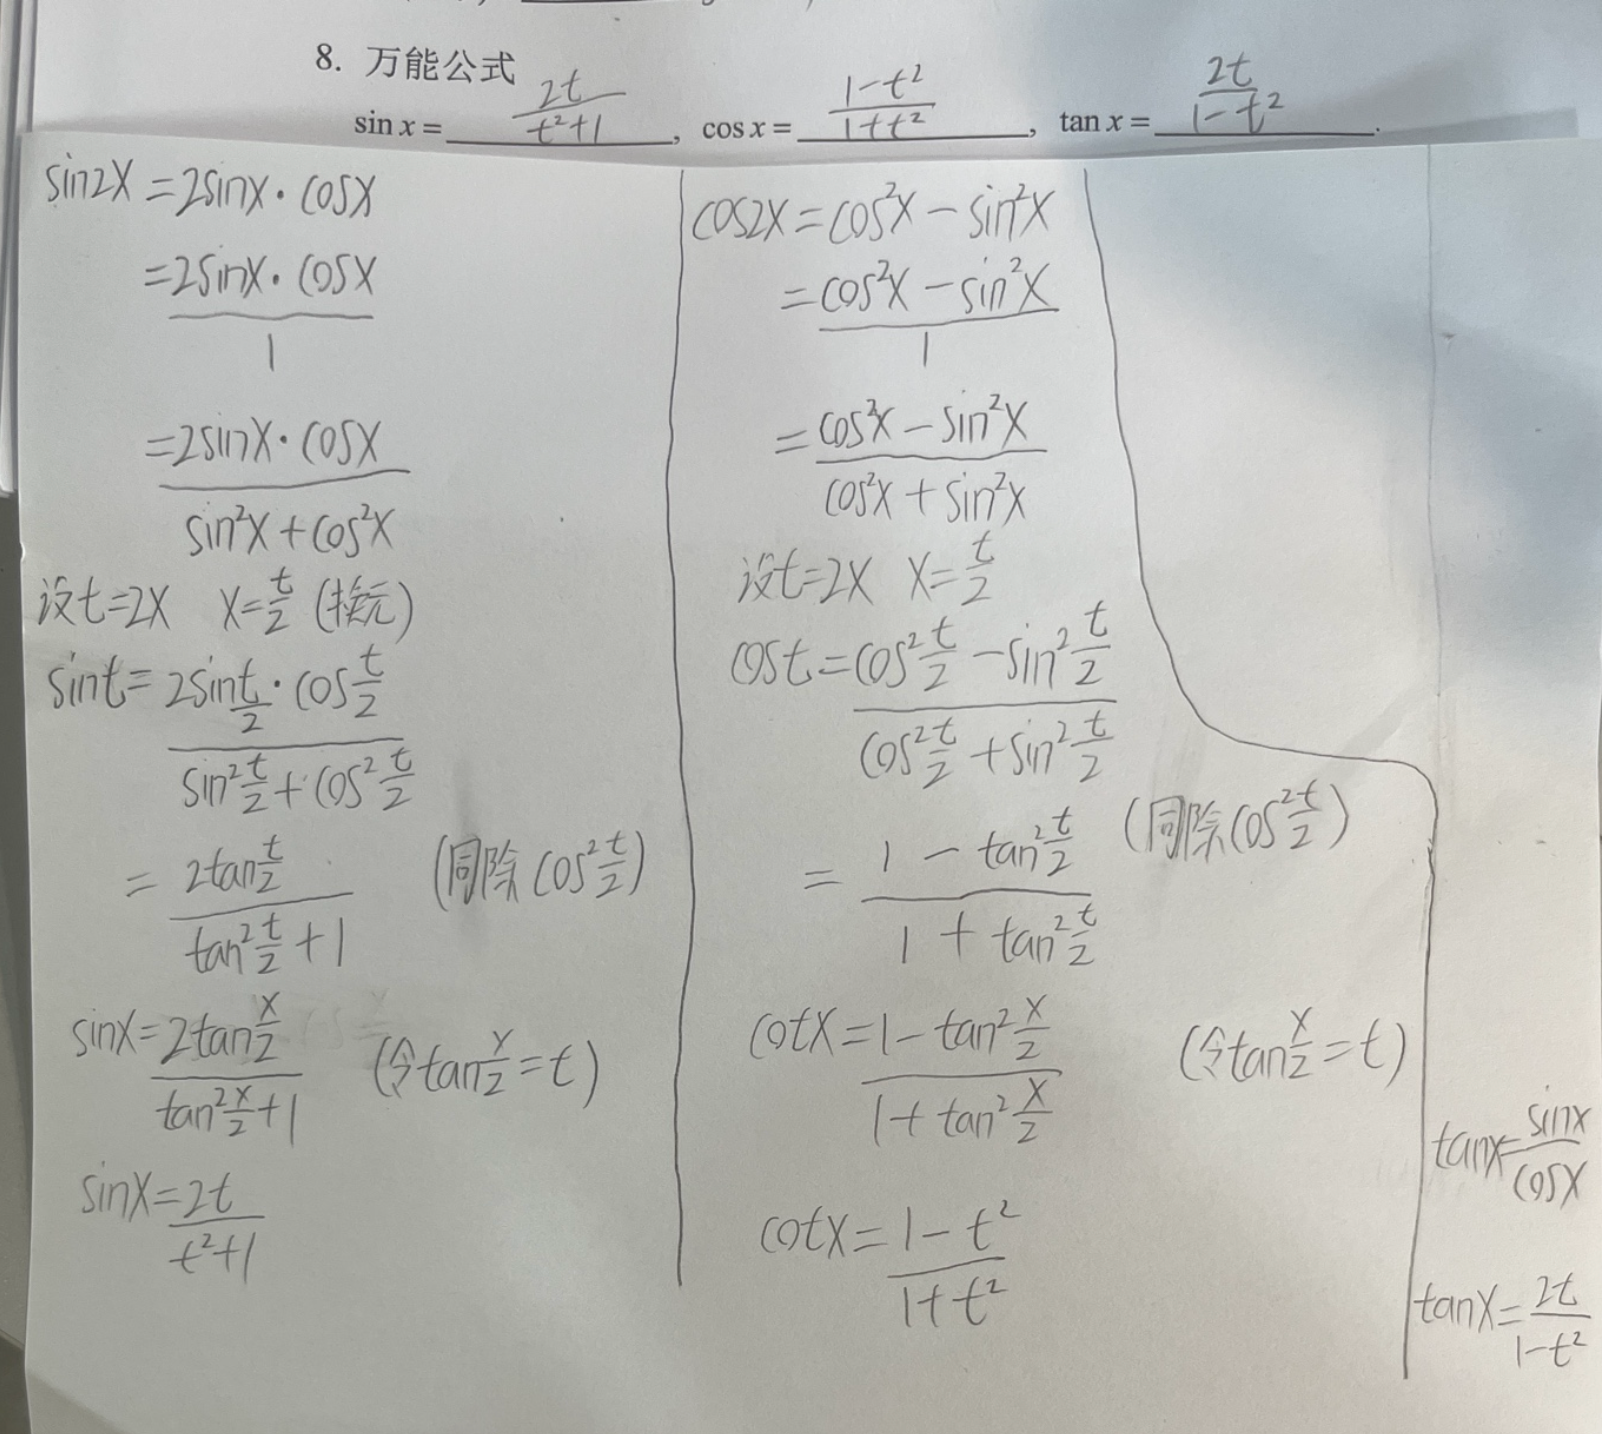 8. 万能公式
sin x = 2t/(t²+1), cos x = (1-t²)/(1+t²), tan x = 2t/(1-t²).
sin2x = 2sinx·cosx
= (2sinx·cosx)/1
= (2sinx·cosx)/(sin²x+cos²x)
设t=2x x=t/2 (换元)
sint = (2sin t/2·cos t/2)/(sin² t/2+cos² t/2)
= (2tan t/2)/(tan² t/2+1) (同除cos² t/2)
sinx = (2tan x/2)/(tan² x/2+1) (令tan x/2=t)
sinx = 2t/(t²+1)
cos2x = cos²x-sin²x
= (cos²x-sin²x)/1
= (cos²x-sin²x)/(cos²x+sin²x)
设t=2x x=t/2
cost = (cos² t/2-sin² t/2)/(cos² t/2+sin² t/2)
= (1-tan² t/2)/(1+tan² t/2) (同除cos² t/2)
cotx = (1-tan² x/2)/(1+tan² x/2) (令tan x/2=t)
cotx = (1-t²)/(1+t²)
tanx = sinx/cosx
tanx = 2t/(1-t²)